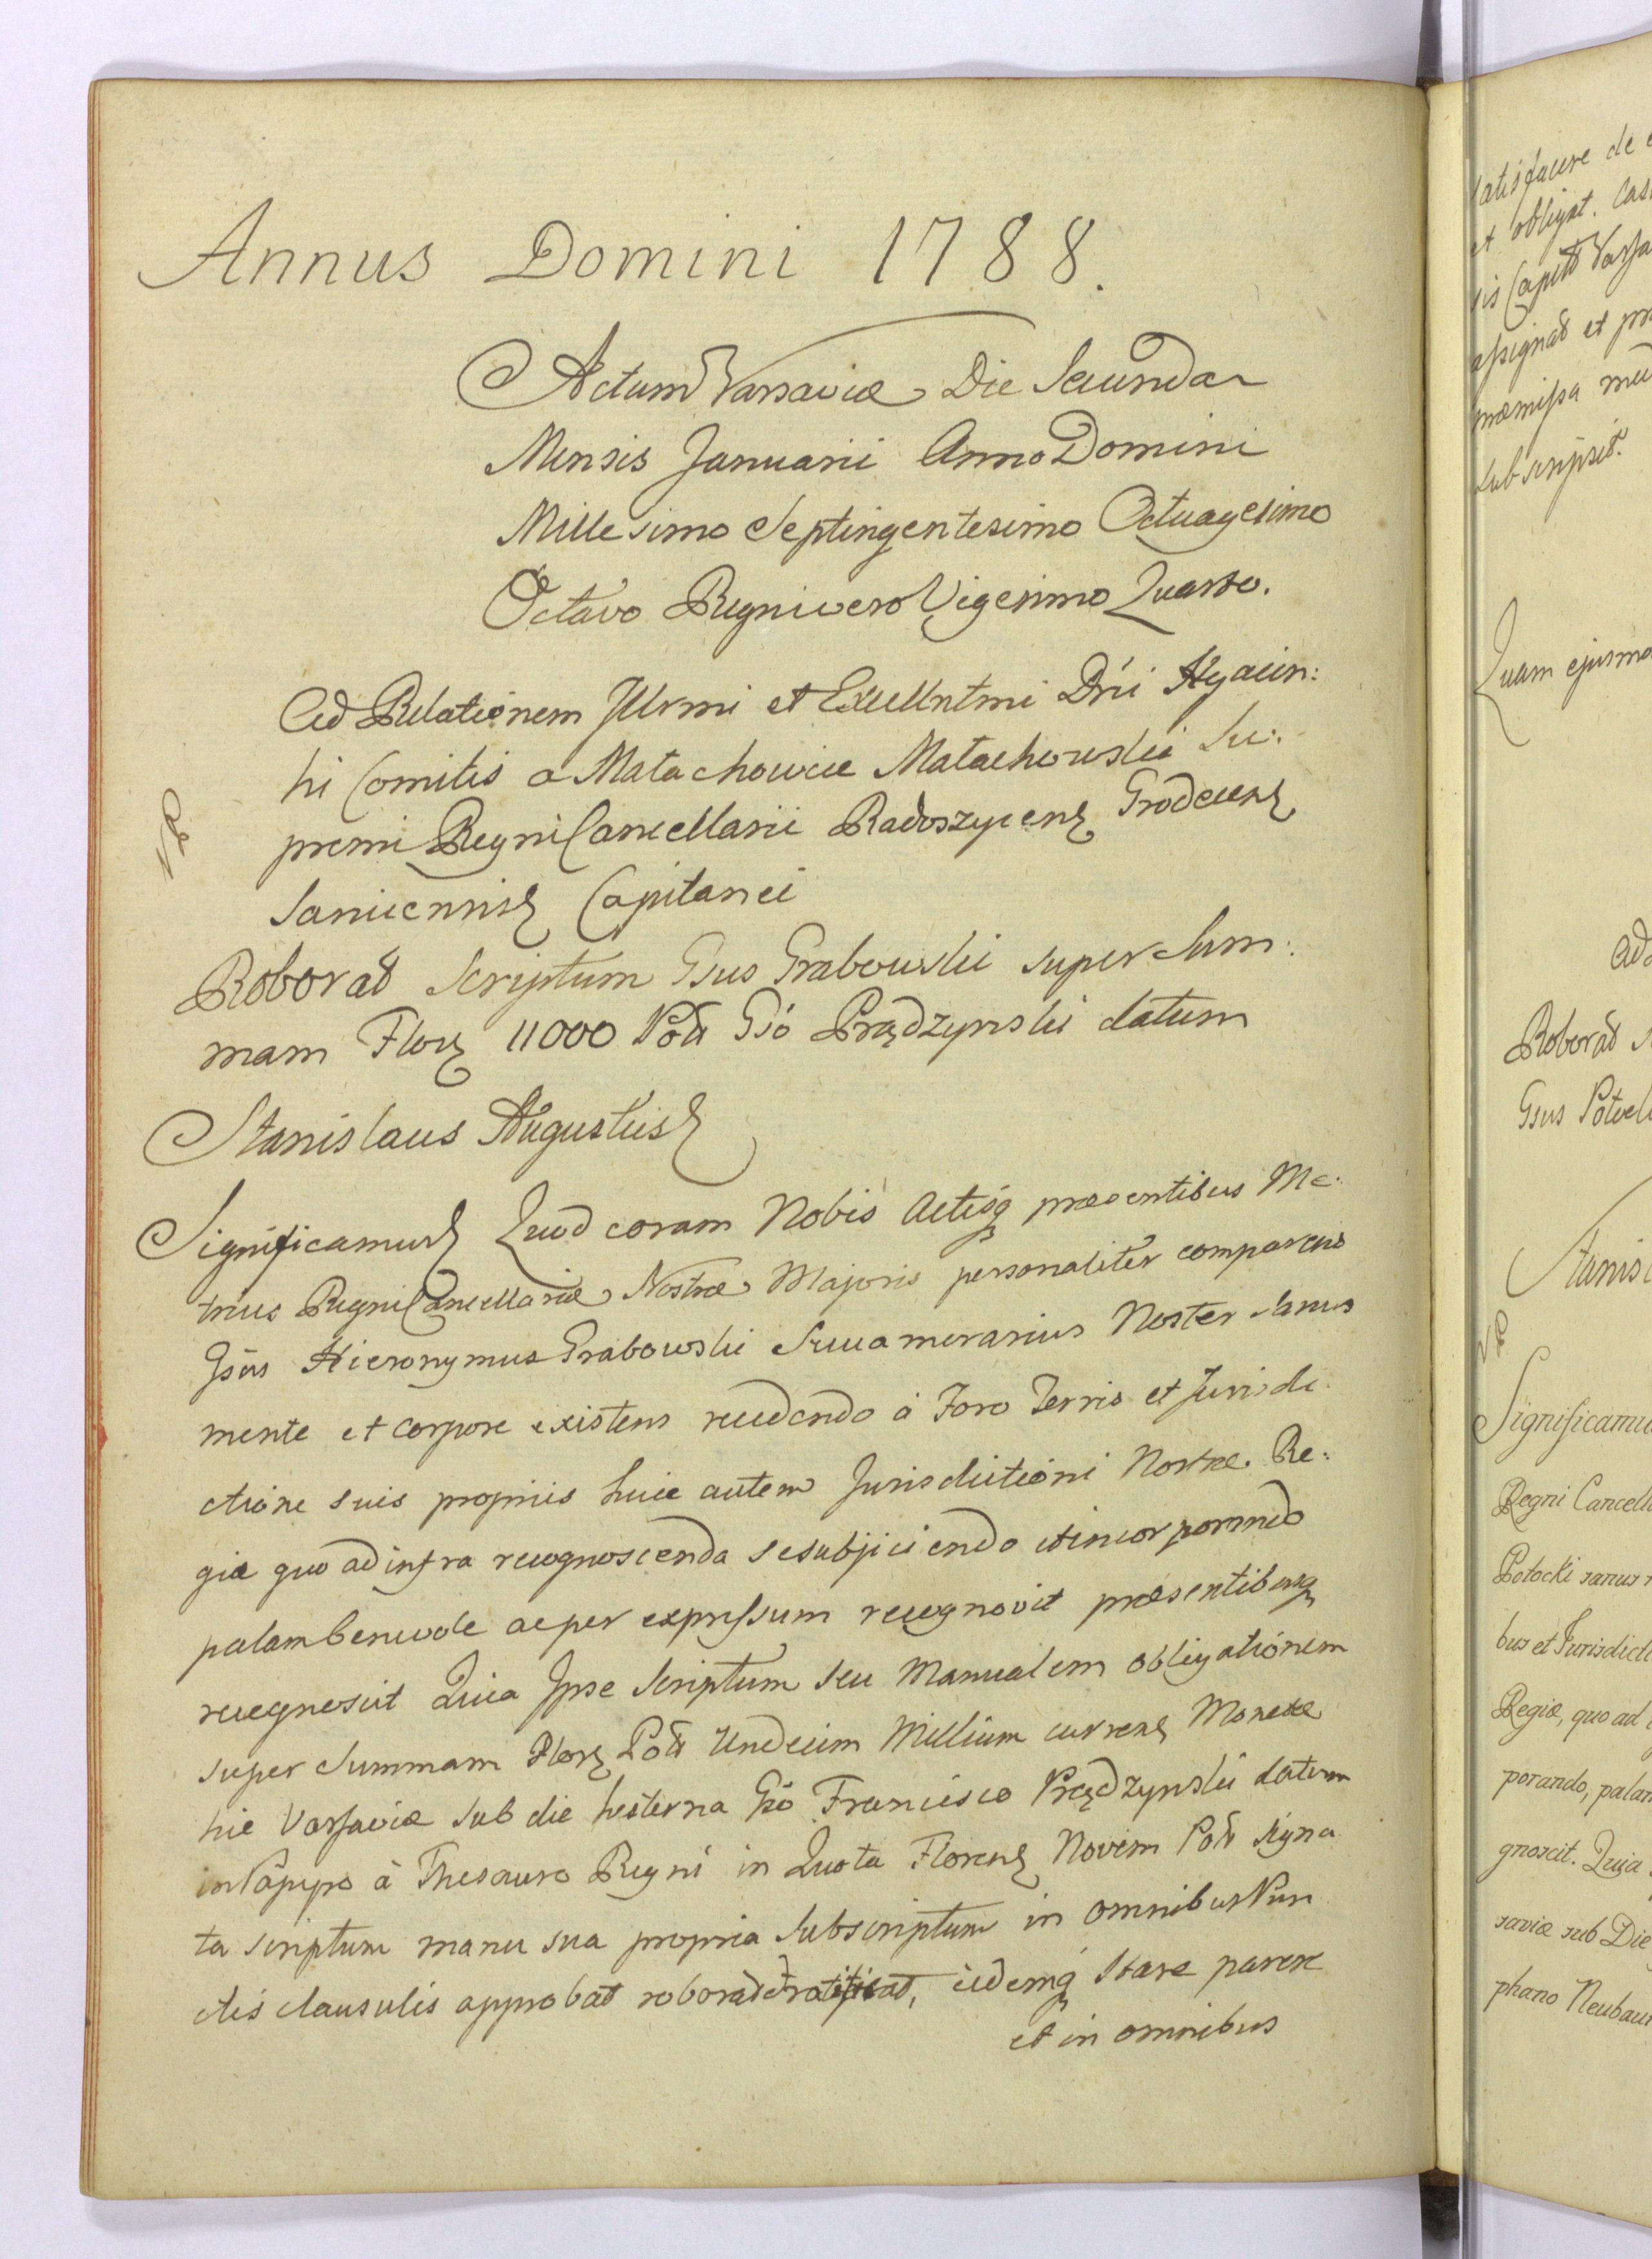 Annus Domini 1788.
Actum Varsaviæ Die Secunda
Mensis Januarii Anno Domini
Millesimo Septingentesimo Octuagesimo
Octavo Regni vero Vigesimo Quarto.
Ad Relationem Illrmi et Excellntmi Dñi Hyacin:
hi Comitis a Małachowice Małachowski Su:
premi Regni Cancellarii Radoszycens Grodecens
Saniecensis Capitanei
Roborat Scriptum Gsus Grabowski super Sum:
mam Flor 11000 Poll Gso Prądzynski datum
Stanislaus Augustus
Significamus Quod coram Nobis Actisq præsentibus Me:
tricis Regni Cancellariæ Nostræ Majoris personaliter comparens
Gsus Hieronymus Grabowski Succamerarius Noster Sanus
mente et corpore existens recedendo à Foro Terris et Jurisdi:
ctione suis propriis huic autem Jurisdictioni Nostræ Re:
giæ quo ad infra recognoscenda se subjiciendo et incorporando
palam benevole ac per expressum recognovit præsentibusq
recognoscit Quia Ipse Scriptum seu Manualem obligationem
super Summam Flor Poll Undecim Millium currens Monetæ
hic Varsaviæ sub die hesterna Gso Francisco Prądzynski datum
in Papyro à Thesauro Regni in Quota Florens Novem Poll signa
ta scriptum manu sua propria Subscriptum in omnibus Pun
ctis clausulis approbat roborat et ratificat, eidemq stare parere
et in omnibus
satisfacere de
et obligat.
sis Capit
assignat et
præmissa
subscripsit.
Quam ejusmo
Ad
Roborat
Gsus
Stanis
Significamu
Regni Cancella
Potocki sanus
bus et Jurisdicti
Regiæ, quo ad
porando, palam
gnoscit. Quia
saviæ sub Die
phano Neubau